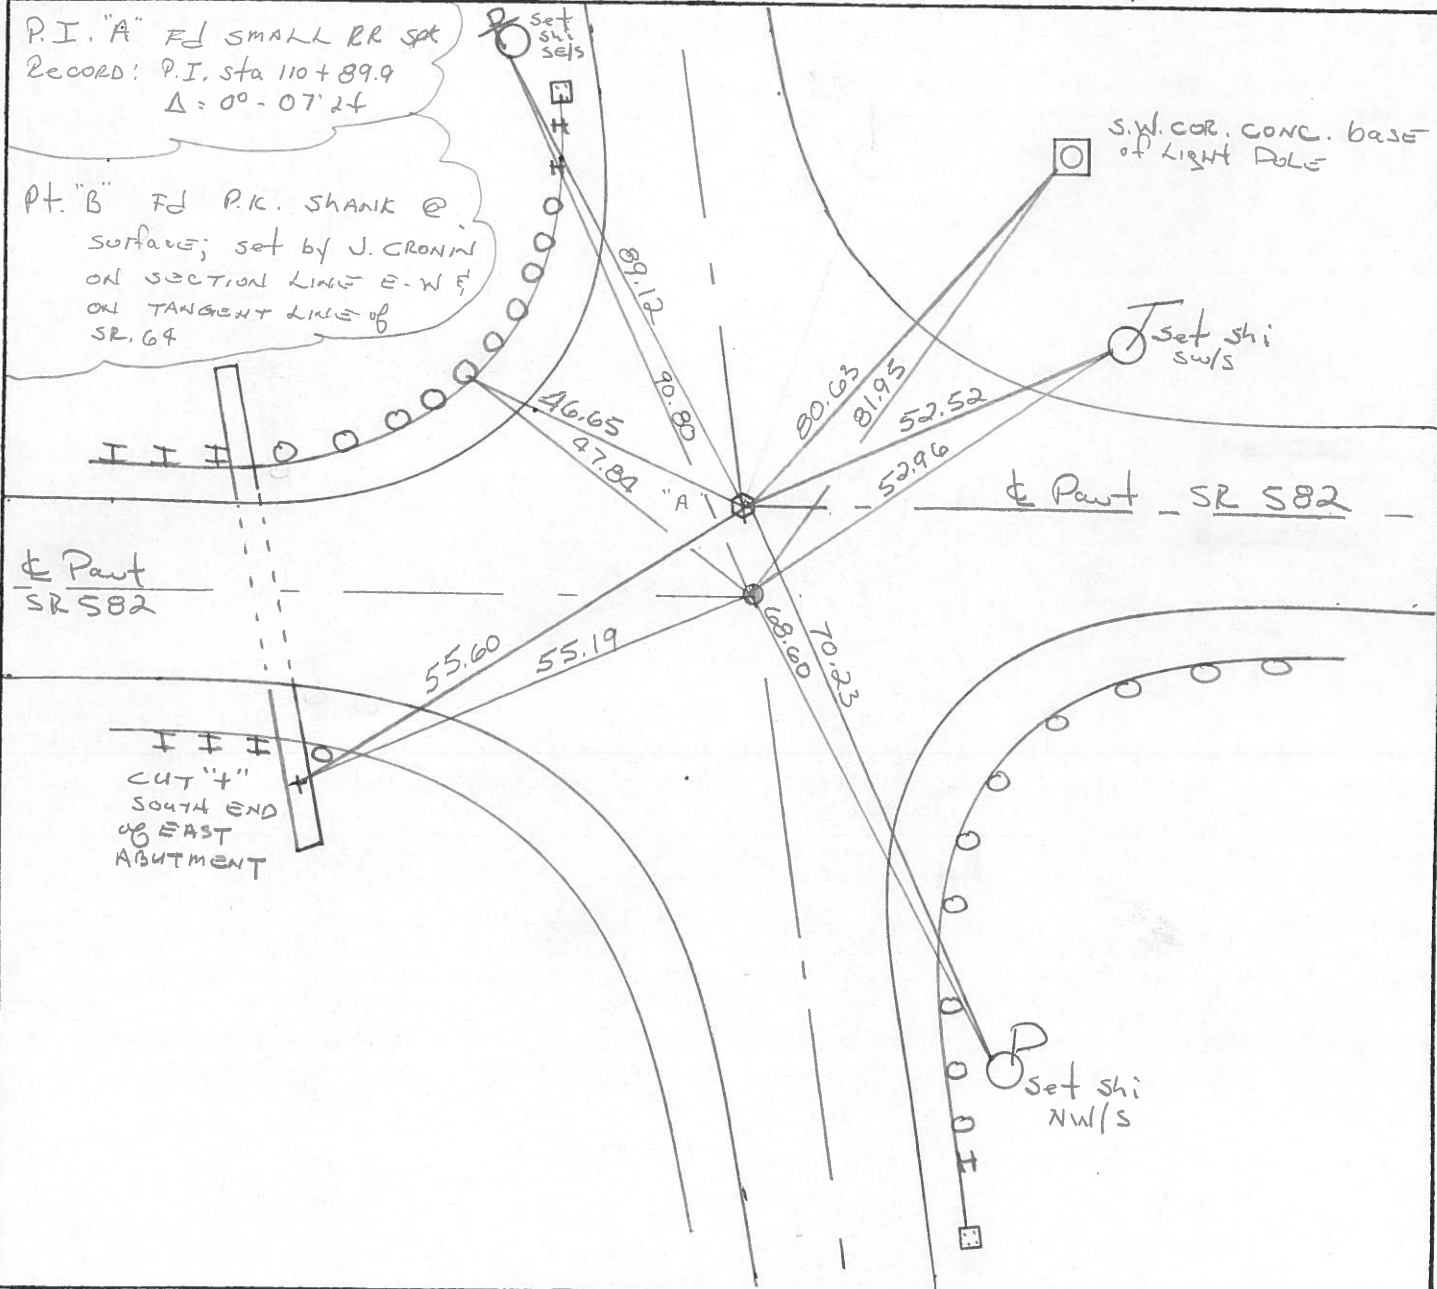 P.I. "A" Fd SMALL RR SPK
RECORD: P.I. Sta 110 + 89.9
Δ = 0° - 07' 2±
Pt. "B" Fd P.K. SHANK @
surface; set by J. CRONIN
ON SECTION LINE E-W &
ON TANGENT LINE of
SR. 64
set
shi
SE/S
S.W. COR. CONC. base
of Light POLE
set shi
SW/S
89.12
90.80
80.63
81.95
52.52
52.96
46.65
47.84
"A"
℄ Pavt SR 582
℄ Pavt
SR 582
55.60
55.19
68.60
70.23
CUT "+"
SOUTH END
of EAST
ABUTMENT
set shi
NW/S